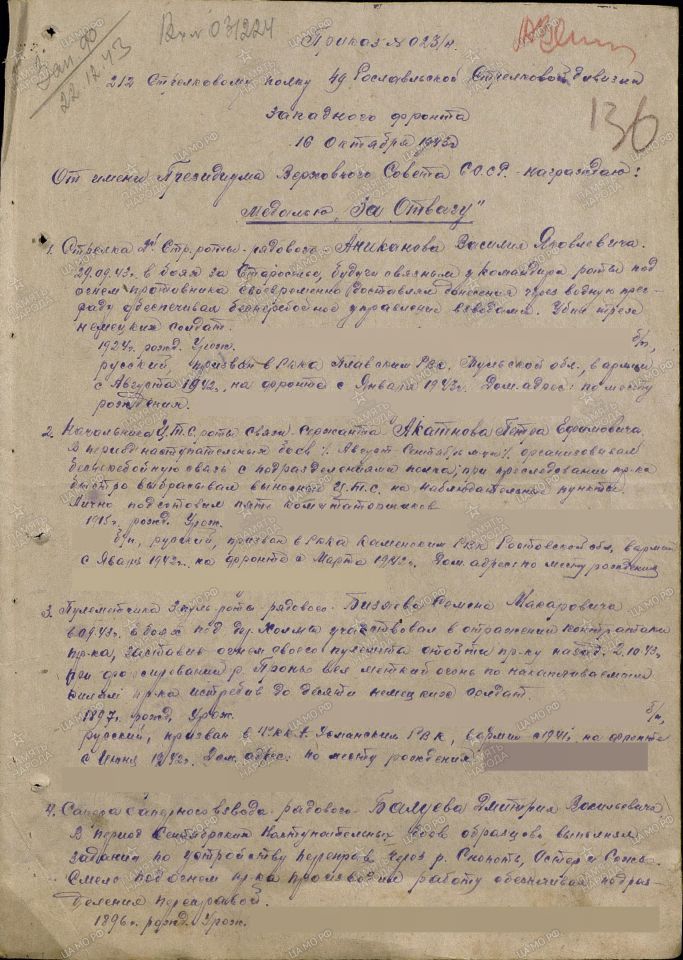 Вх № 031224
Зак 90
22.12.43
136
Приказ № 023/н.
212 Стрелковому полку 49 Рославльской Стрелковой дивизии
Западного фронта
16 Октября 1943г
От имени Президиума Верховного Совета СССР - награждаю:
Медалью "За Отвагу"
1. Стрелка стр. роты - рядового - Аниканова Василия Яковлевича.
29.09.43г. в боях за Старосело, будучи связным у командира роты под
огнем противника своевременно доставлял донесения через водную прег-
раду обеспечивал бесперебойное управление взводами. Убил трех
немецких солдат.
1924г. рожд. Урож. б/п,
русский, призван в РККА Плавским РВК, Тульской обл., в армии
с Августа 1942г., на фронте с Января 1943г. Дом. адрес: по месту
рождения.
2. Начальника Ц.Т.С. роты связи сержанта Акатнова Петра Ефимовича
В период наступательных боев Август-Сентябрь организовал
бесперебойную связь с подразделениями полка, при преследовании пр-ка
быстро выбрасывал выносной Ц.Т.С. на наблюдательные пункты
Лично подготовил пять коммутаторщиков
1915г. рожд. Урож.
б/п, русский, призван в РККА Каменским РВК Ростовской обл., в армии
с Января 1942г. на фронте с Марта 1942г. Дом. адрес по месту рождения
3. Пулеметчика роты рядового - Семена Макаровича
в боях под дер. Холмы участвовал в отражении контратаки
пр-ка, заставив огнем своего пулемета отойти пр-ку назад. 2.10.43г.
при форсировании р. Проня вел меткий огонь по накапливаемым
пр-ка истребив до десяти немецких солдат.
1897г. рожд. Урож. б/п,
русский, призван в РККА РВК, в армии с 1941г. на фронте
с 1942г. Дом. адрес: по месту рождения
4. Сапера саперного взвода - рядового - Балуева Дмитрия Васильевича
В период Сентябрьских наступательных боев образцово выполнял
задания по устройству переправ через р. Снопоть, Остер и Сожь.
Смело под огнем пр-ка производил работу обеспечивая подраз-
деления переправой.
1896г. рожд. Урож.
ПАМЯТЬ НАРОДА
ЦАМО.РФ